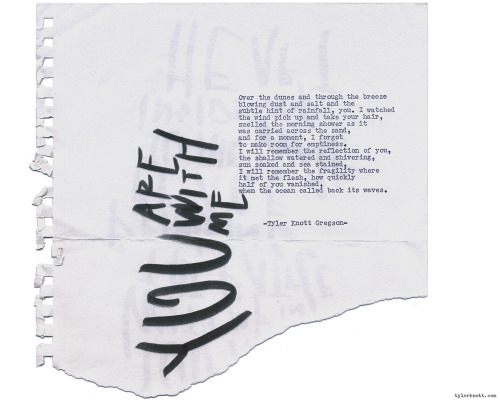 Over the dunes and through the breeze
blowing dust and salt and the
subtle hint of rainfall, you. I watched
the wind pick up and take your hair,
smelled the morning shower as it
was carried across the sand,
and for a moment, I forget
to make room for emptiness.
I will remember the reflection of you,
the shallow watered and shivering,
sun soaked and sea stained,
I will remember the fragility where
it met the flesh, how quickly
half of you vanished,
when the ocean called back its waves.
-Tyler Knott Gregson-
YOU
ARE
WITH
ME
tylerknott.com